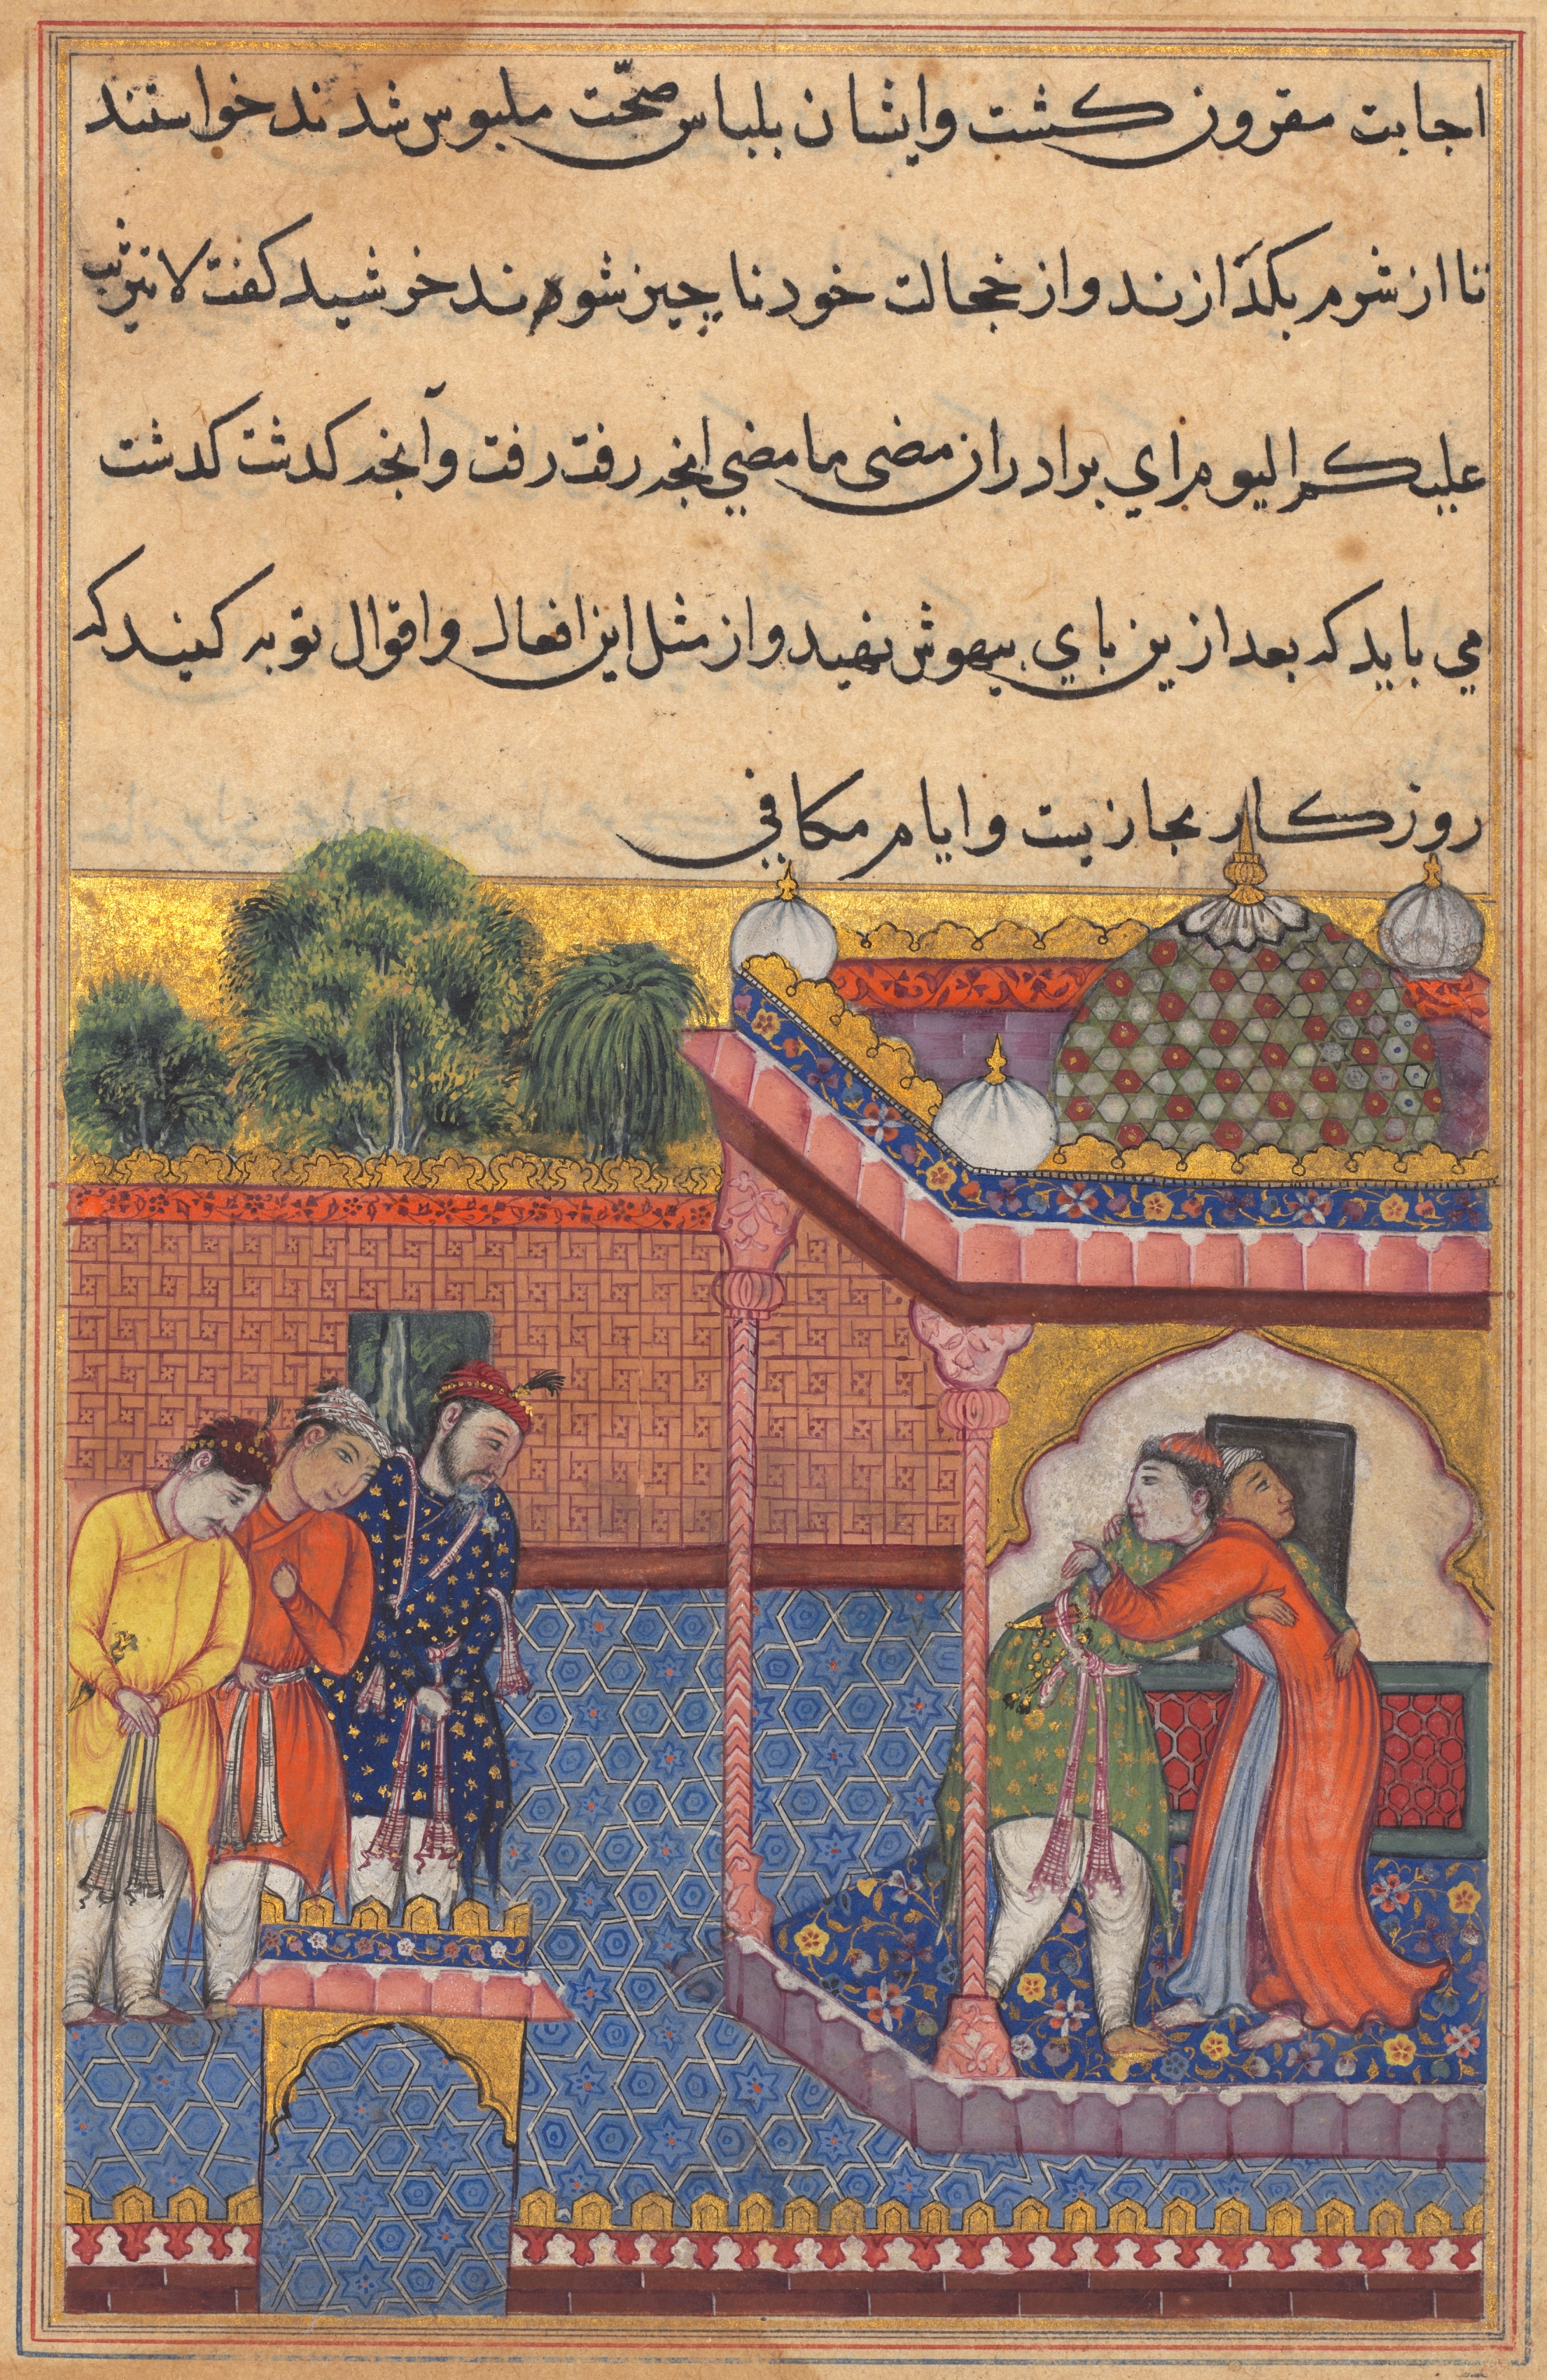 اجابت مقرون كشت وایشان بلباس صحّت ملبوس شدند خواستند
تا از شرم بكدازند و از خجالت خود ناچیز شوند خرشید كفت لا تثریب
علیكم الیوم ای برادران مضی ما مضی انچه رفت رفت و آنچه كدشت كدشت
می باید كه بعد ازین بای بیهوش نهید و از مثل این افعال و اقوال توبه كنید كه
روزكار مجازیست و ایام مكافی